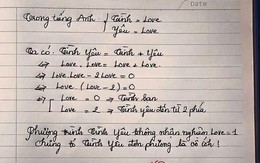 Date
Trong tiếng Anh { Tình = Love
Yêu = Love
Ta có: Tình Yêu = Tình + Yêu
⇔ Love . Love = Love + Love
⇔ Love.Love - 2Love = 0
⇔ Love (Love - 2) = 0
⇔ [ Love = 0 ⇒ Tình bạn
Love = 2 ⇒ Tình yêu đến từ 2 phía
Phương trình Tình Yêu không nhận nghiệm Love = 1
Chứng tỏ Tình Yêu đơn phương là vô ích!